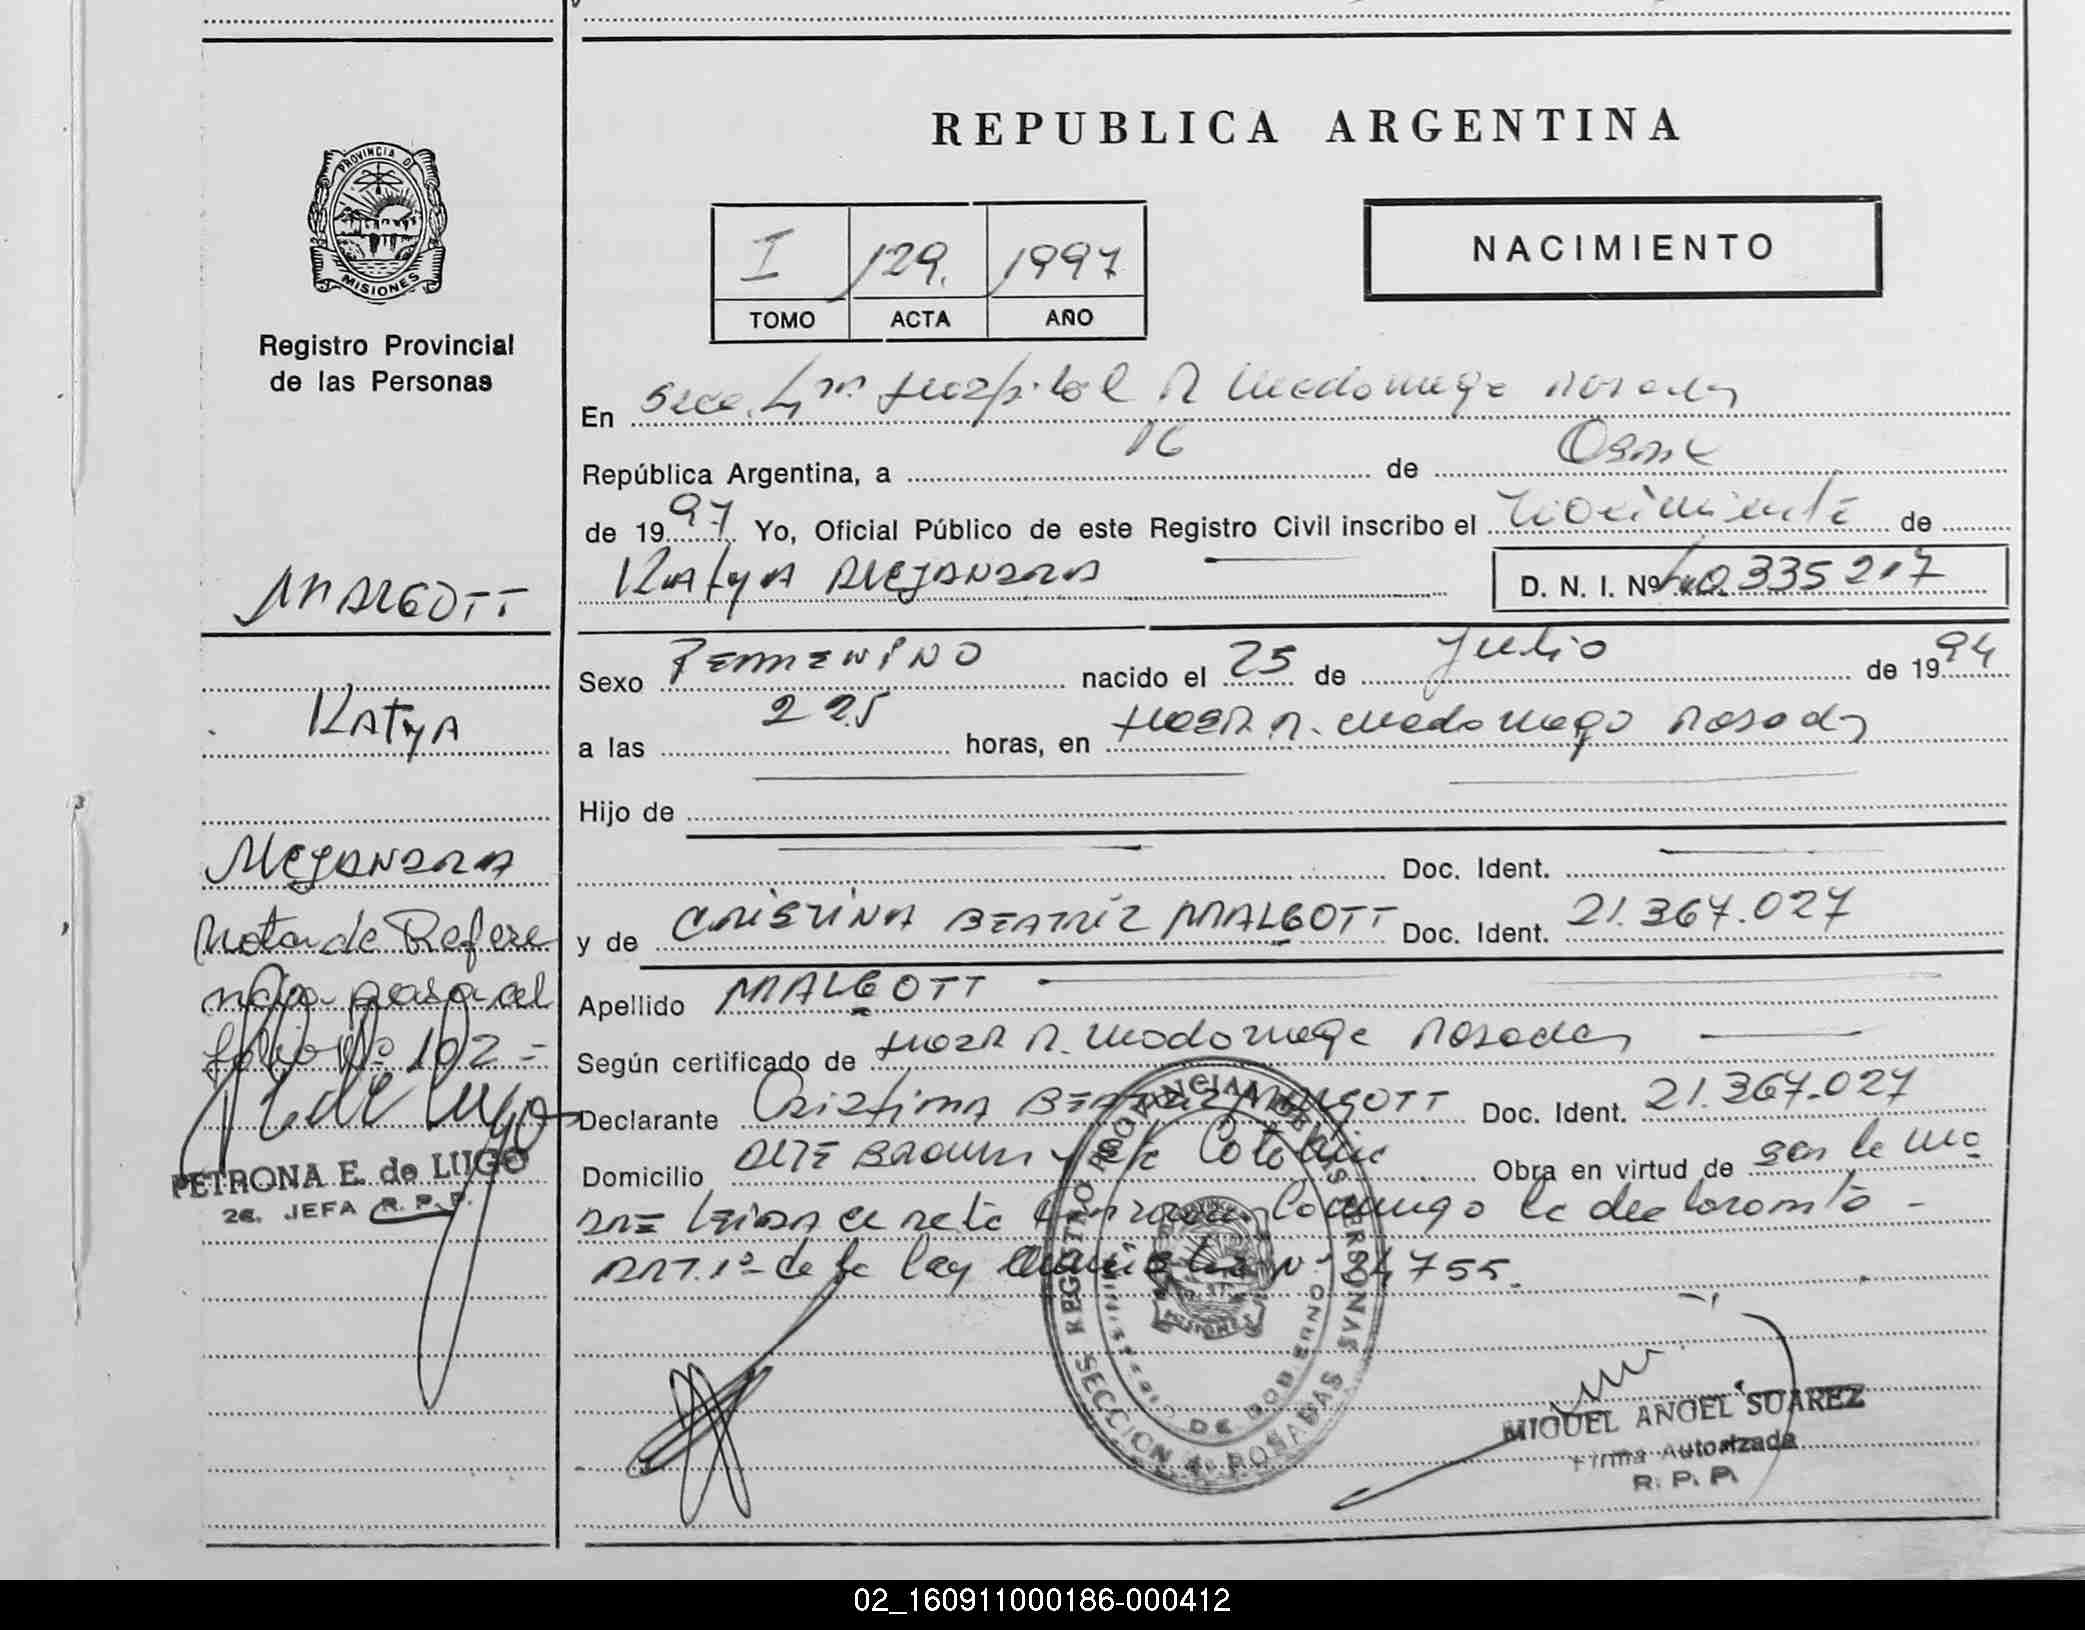 REPUBLICA ARGENTINA
PROVINCIA DE
MISIONES
Registro Provincial
de las Personas
I 129. 1997
TOMO ACTA AÑO
NACIMIENTO
En Secc. Hospital R Madariaga Posadas
República Argentina, a 16 de
de 1997 Yo, Oficial Público de este Registro Civil inscribo el Nacimiento de
Katya Alejandra D. N. I. Nº 40.335217
Sexo Femenino nacido el 25 de Julio de 1994
a las 2 25 horas, en Hosp. R. Madariaga Posadas
Hijo de
Doc. Ident.
y de CRISTINA BEATRIZ MALGOTT Doc. Ident. 21.367.027
Apellido MALGOTT
Según certificado de Hosp R. Madariaga Posadas
Declarante Cristina BEATRIZ MALGOTT Doc. Ident. 21.367.027
Domicilio ALTE BROWN y Obra en virtud de ser la ma
DRE Leida el acta conmigo la declarante -
ART. 1º de la ley Nº 24755.
MALGOTT
KATYA
ALEJANDRA
Nota de Refere
ncia pasa al
folio Nº 102 =
E de Lugo
PETRONA E. de LUGO
2a. JEFA R. P. P.
REGISTRO PROVINCIAL DE LAS PERSONAS
MINISTERIO DE GOBIERNO
SECCION 4ª POSADAS
MISIONES
MIGUEL ANGEL SUAREZ
Firma Autorizada
R. P. P.
02_160911000186-000412